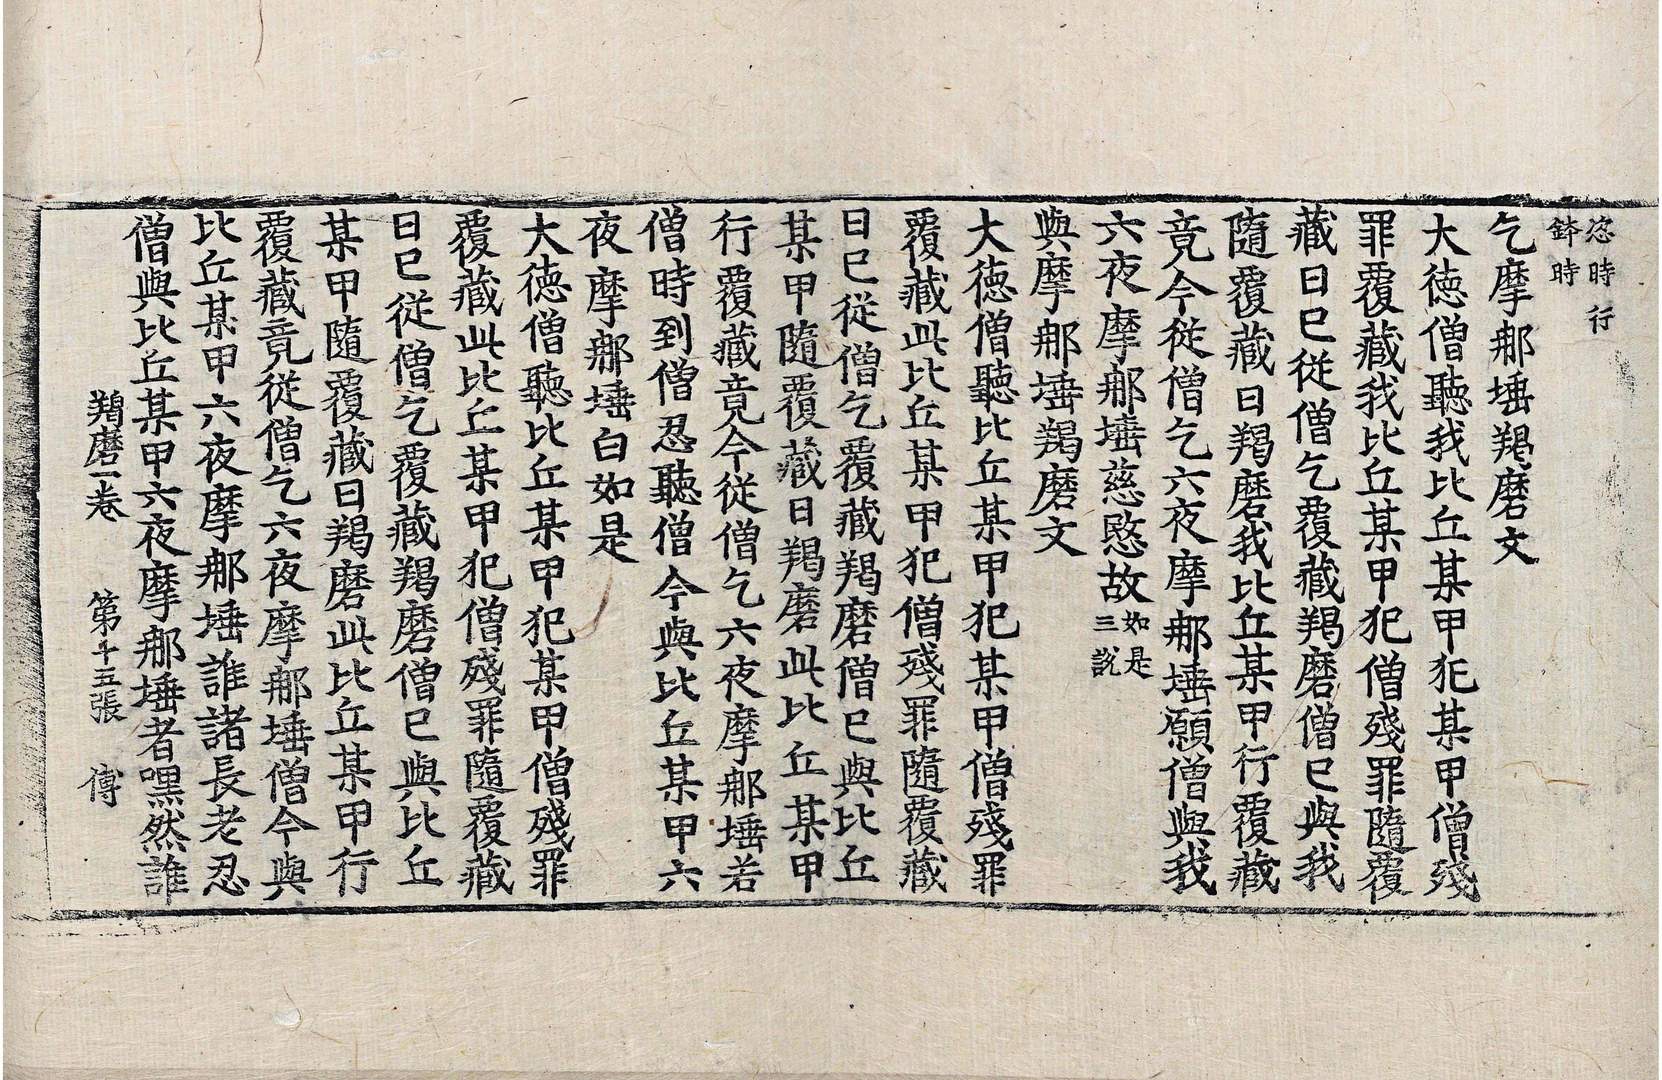 恣時行
鉢時
乞摩那埵羯磨文
大德僧聽我比丘某甲犯某甲僧殘
罪覆藏我比丘某甲犯僧殘罪隨覆
藏日已從僧乞覆藏羯磨僧已與我
隨覆藏日羯磨我比丘某甲行覆藏
竟今從僧乞六夜摩那埵願僧與我
六夜摩那埵慈愍故如是三說
與摩那埵羯磨文
大德僧聽比丘某甲犯某甲僧殘罪
覆藏此比丘某甲犯僧殘罪隨覆藏
日已從僧乞覆藏羯磨僧已與比丘
某甲隨覆藏日羯磨此比丘某甲
行覆藏竟今從僧乞六夜摩那埵若
僧時到僧忍聽僧今與比丘某甲六
夜摩那埵白如是
大德僧聽比丘某甲犯某甲僧殘罪
覆藏此比丘某甲犯僧殘罪隨覆藏
日已從僧乞覆藏羯磨僧已與比丘
某甲隨覆藏日羯磨此比丘某甲行
覆藏竟從僧乞六夜摩那埵僧今與
比丘某甲六夜摩那埵誰諸長老忍
僧與比丘某甲六夜摩那埵者嘿然誰
羯磨一卷 第十五張 傅